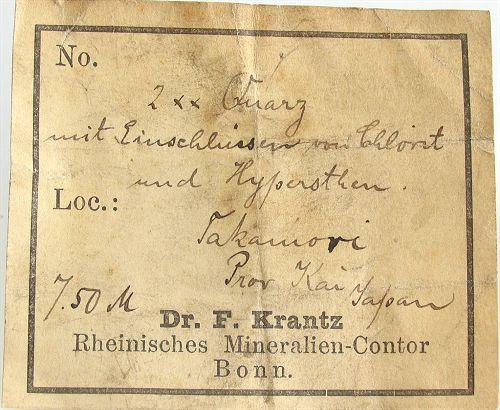 No.
2 xx Quarz
mit Einschlüssen von Chlorit
und Hypersthen.
Loc.:
Takamori
Prov Kai Japan
7.50 M
Dr. F. Krantz
Rheinisches Mineralien-Contor
Bonn.